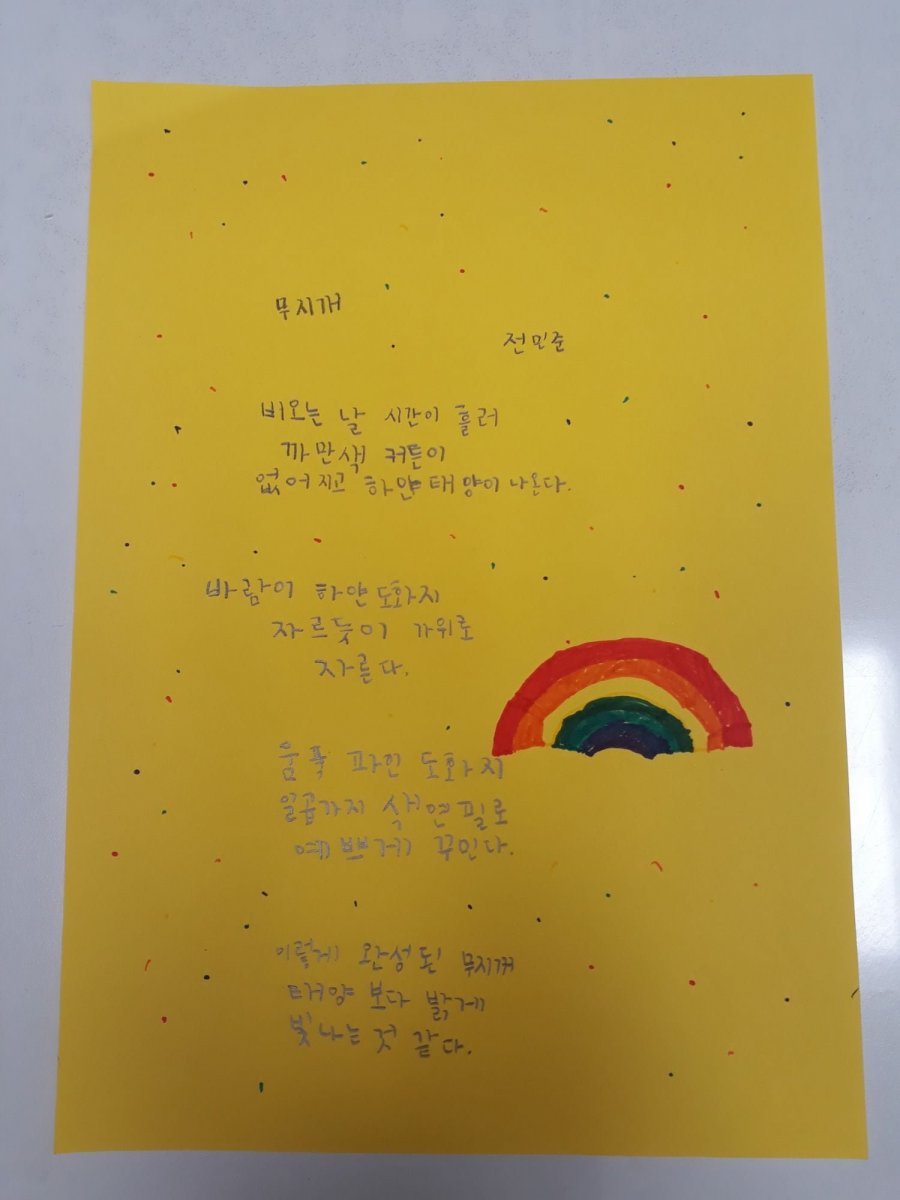 무지개
전민준
비오는 날 시간이 흘러
까만색 커튼이
없어지고 하얀태양이 나온다.
바람이 하얀도화지
자르듯이 가위로
자른다.
움푹 파인 도화지
일곱가지 색연필로
예쁘게 꾸민다.
이렇게 완성된 무지개
태양 보다 밝게
빛나는 것 같다.